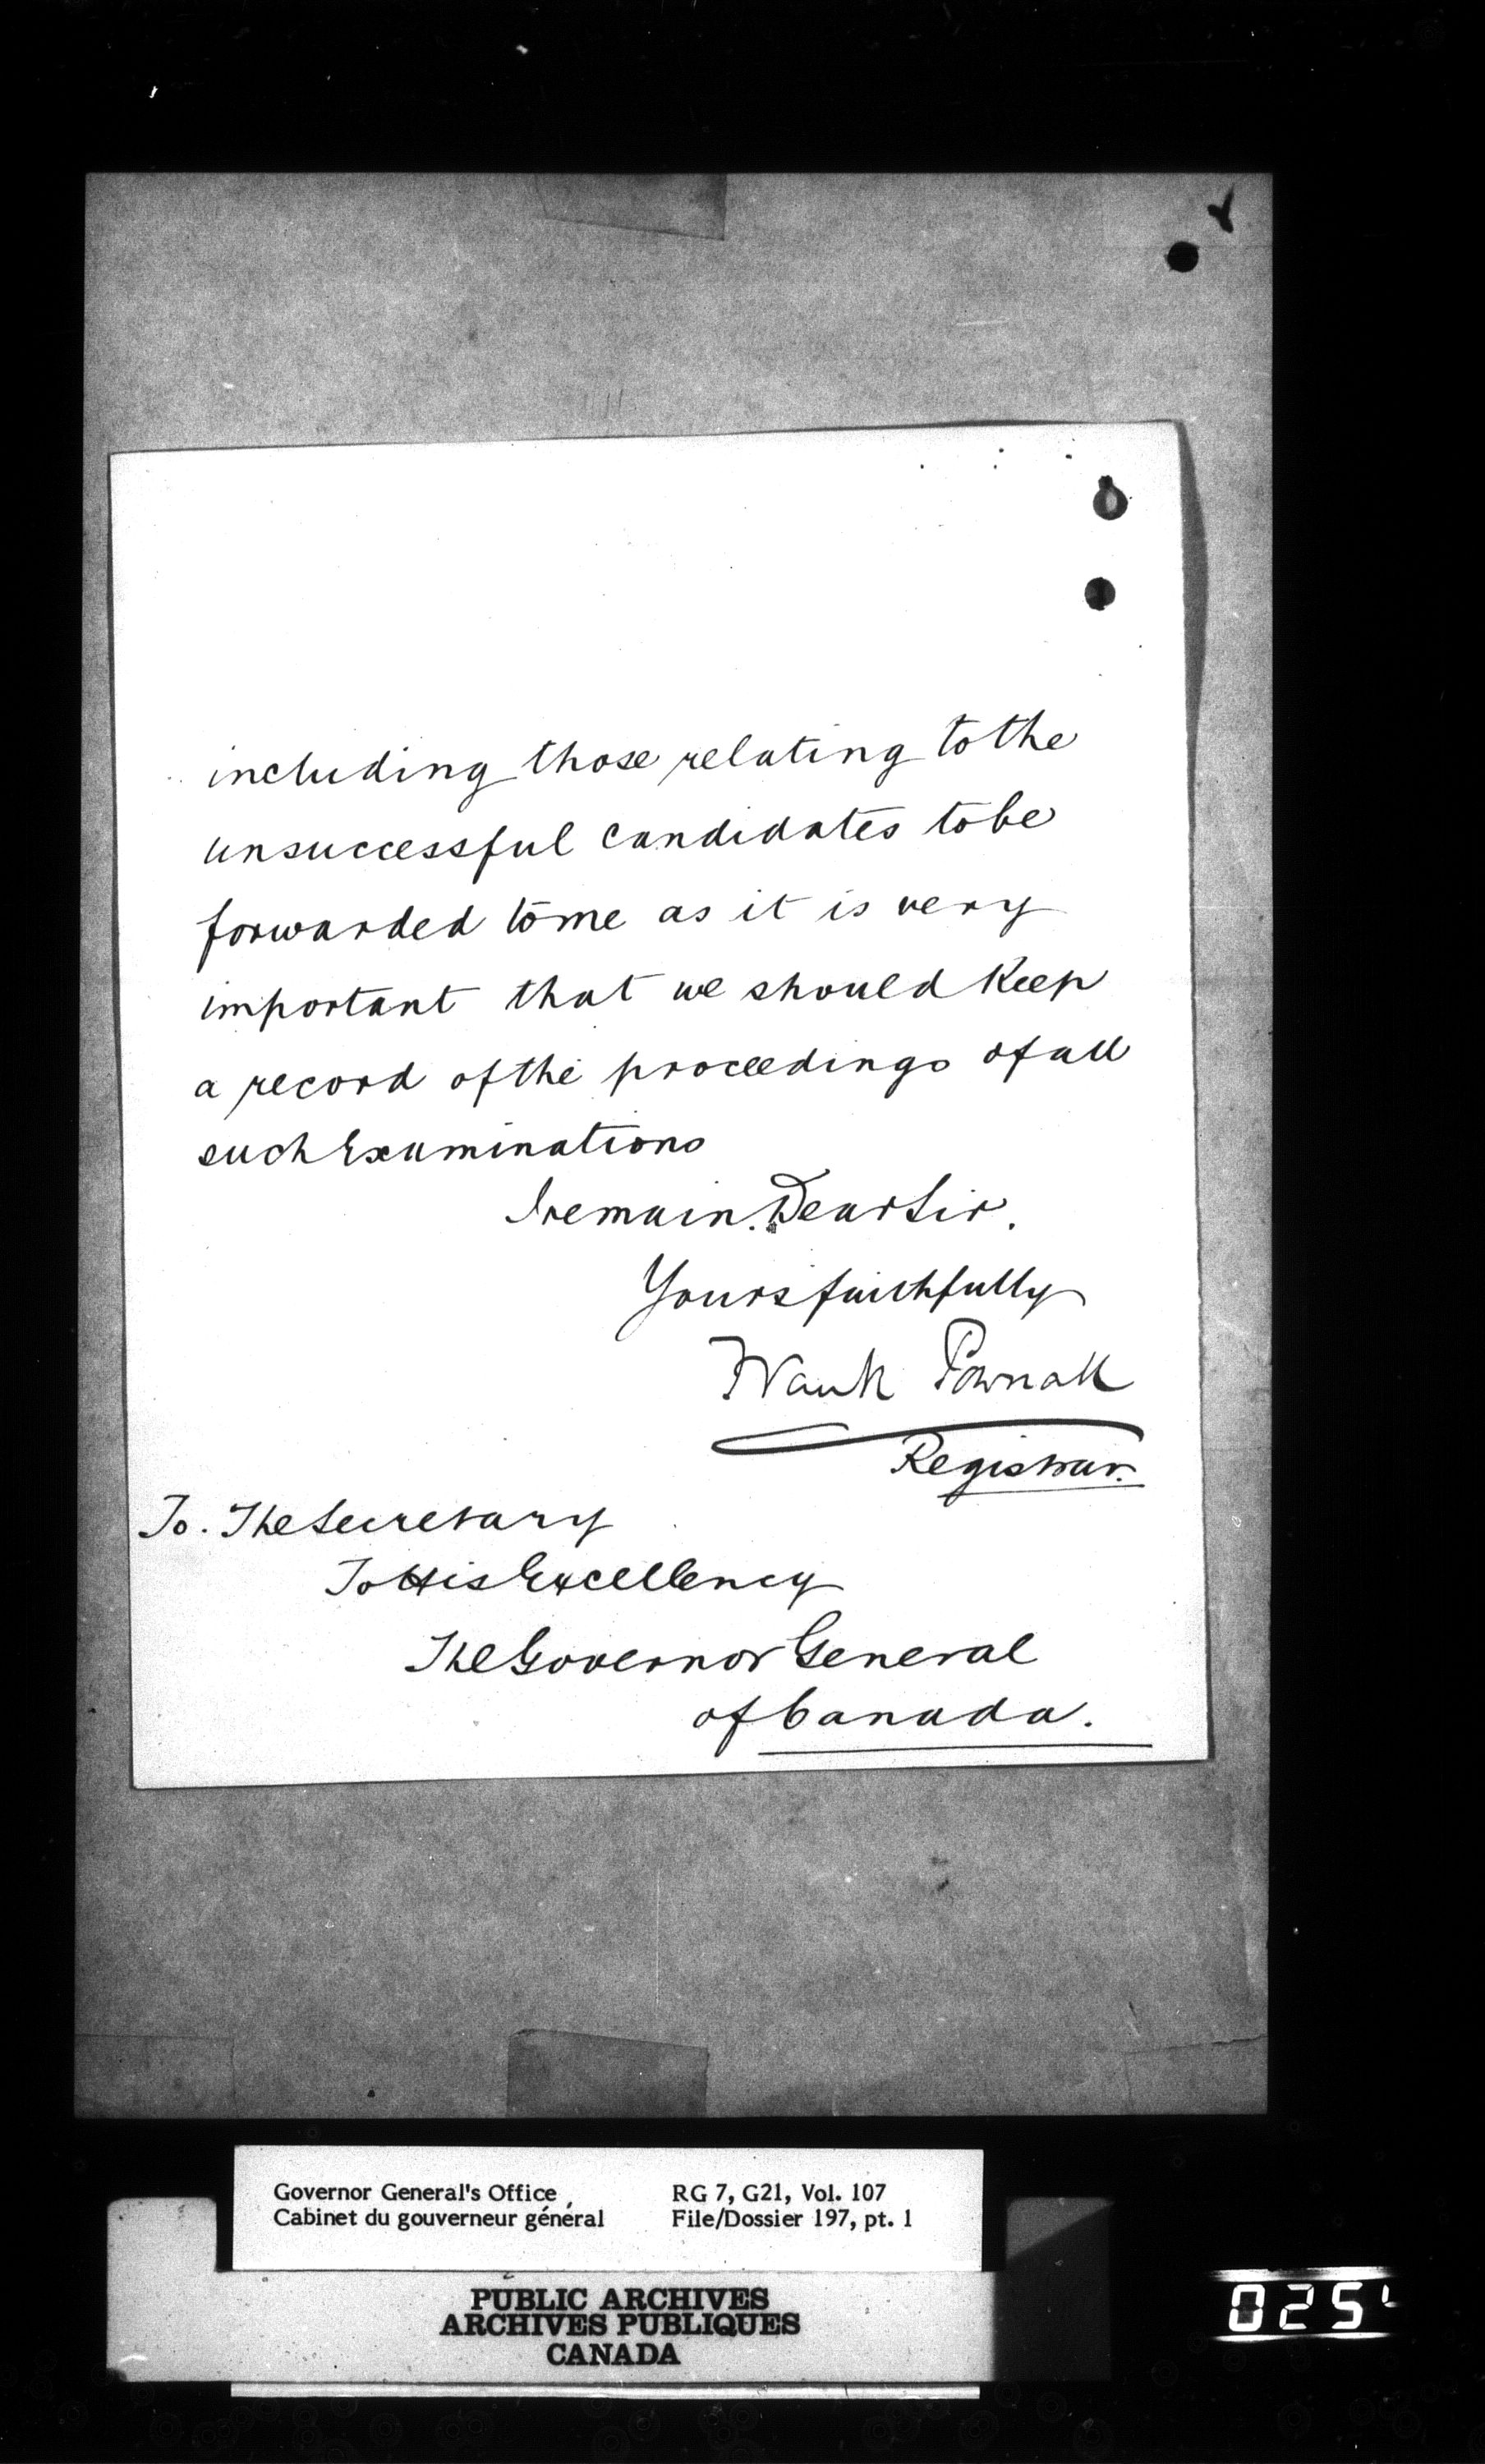 including those relating to the
unsuccessful candidates to be
forwarded to me as it is very
important that we should keep
a record of the proceedings of all
such Examinations
I remain. Dear Sir.
Yours faithfully
Frank Pownall
Registrar.
To. The Secretary
To His Excellency
The Governor General
of Canada.
Governor General's Office RG 7, G21, Vol. 107
Cabinet du gouverneur général File/Dossier 197, pt. 1
PUBLIC ARCHIVES
ARCHIVES PUBLIQUES
CANADA
025